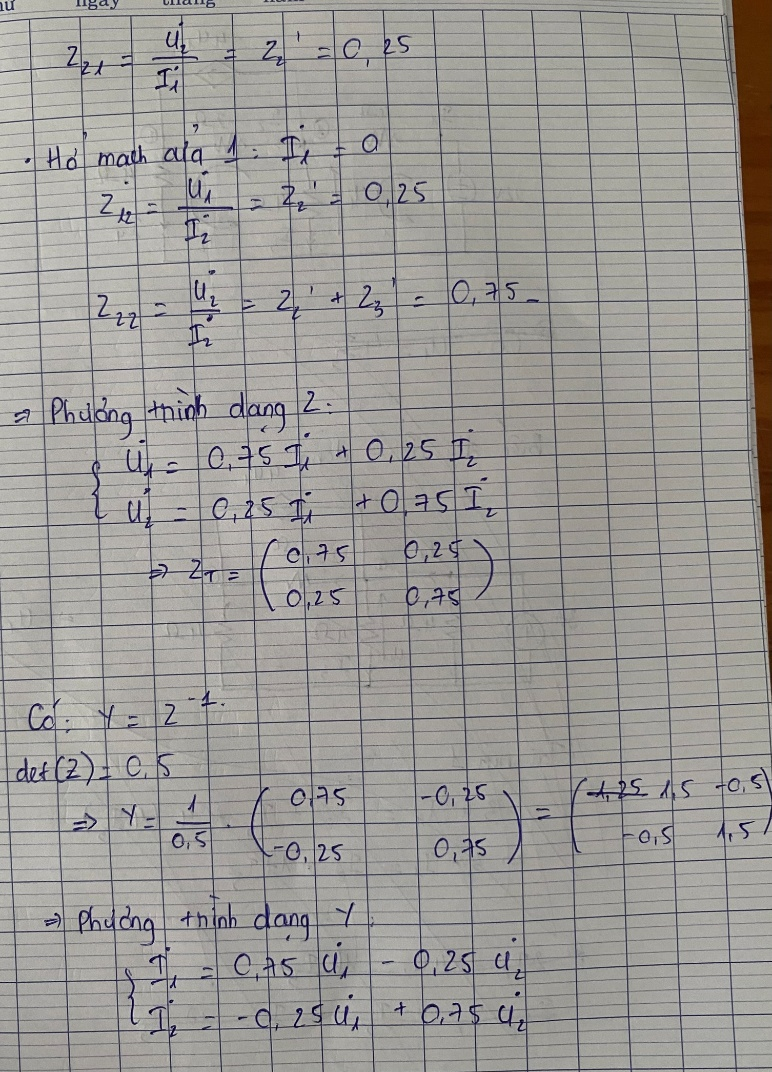 ngày tháng năm
Z₂₁ = U̇₂/İ₁ = Z₂' = 0,25
. Hở mạch cửa 1 : İ₁ = 0
Z₁₂ = U̇₁/İ₂ = Z₂' = 0,25
Z₂₂ = U̇₂/İ₂ = Z₂' + Z₃' = 0,75
⇒ Phương trình dạng Z :
{ U̇₁ = 0,75 İ₁ + 0,25 İ₂
U̇₂ = 0,25 İ₁ + 0,75 İ₂
⇒ Z_T = ( 0,75 0,25
0,25 0,75 )
Có : Y = Z⁻¹.
det(Z) = 0,5
⇒ Y = 1/0,5 . ( 0,75 -0,25 = ( 1,5 -0,5
-0,25 0,75 ) -0,5 1,5 )
⇒ Phương trình dạng Y :
{ İ₁ = 0,75 U̇₁ - 0,25 U̇₂
İ₂ = -0,25 U̇₁ + 0,75 U̇₂